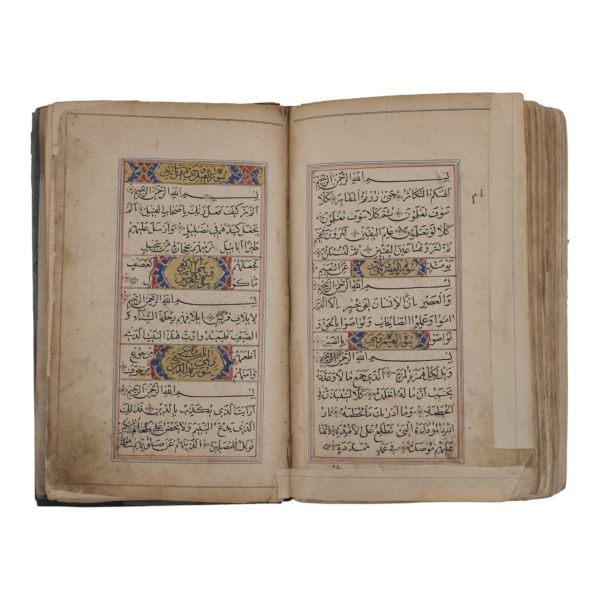 بسم الله الرحمن الرحيم
الهكم التكاثر حتى زرتم المقابر كلا
سوف تعلمون ثم كلا سوف تعلمون
كلا لو تعلمون علم اليقين لترون الجحيم
ثم لترونها عين اليقين ثم لتسئلن
يومئذ سورة العصر عن النعيم
بسم الله الرحمن الرحيم
والعصر ان الانسان لفي خسر الا الذين
امنوا وعملوا الصالحات وتواصوا بالحق و
تواصوا سورة الهمزة بالصبر
بسم الله الرحمن الرحيم
ويل لكل همزة لمزة الذي جمع مالا وعدده
يحسب ان ماله اخلده كلا لينبذن في
الحطمة وما ادراك ما الحطمة نار
الله الموقدة التي تطلع على الافئدة انها
عليهم موصدة في عمد ممددة
سورة الفيل
بسم الله الرحمن الرحيم
الم تر كيف فعل ربك باصحاب الفيل الم
يجعل كيدهم في تضليل وارسل عليهم
طيرا ابابيل ترميهم بحجارة من سجيل
فجعلهم كعصف
ماكول
بسم الله الرحمن الرحيم
لايلاف قريش ايلافهم رحلة الشتاء و
الصيف فليعبدوا رب هذا البيت الذي
اطعمهم من جوع
وامنهم من خوف
بسم الله الرحمن الرحيم
ارايت الذي يكذب بالدين فذلك
الذي يدع اليتيم ولا يحض على طعام المسكين
فويل للمصلين الذين هم عن صلوتهم ساهون